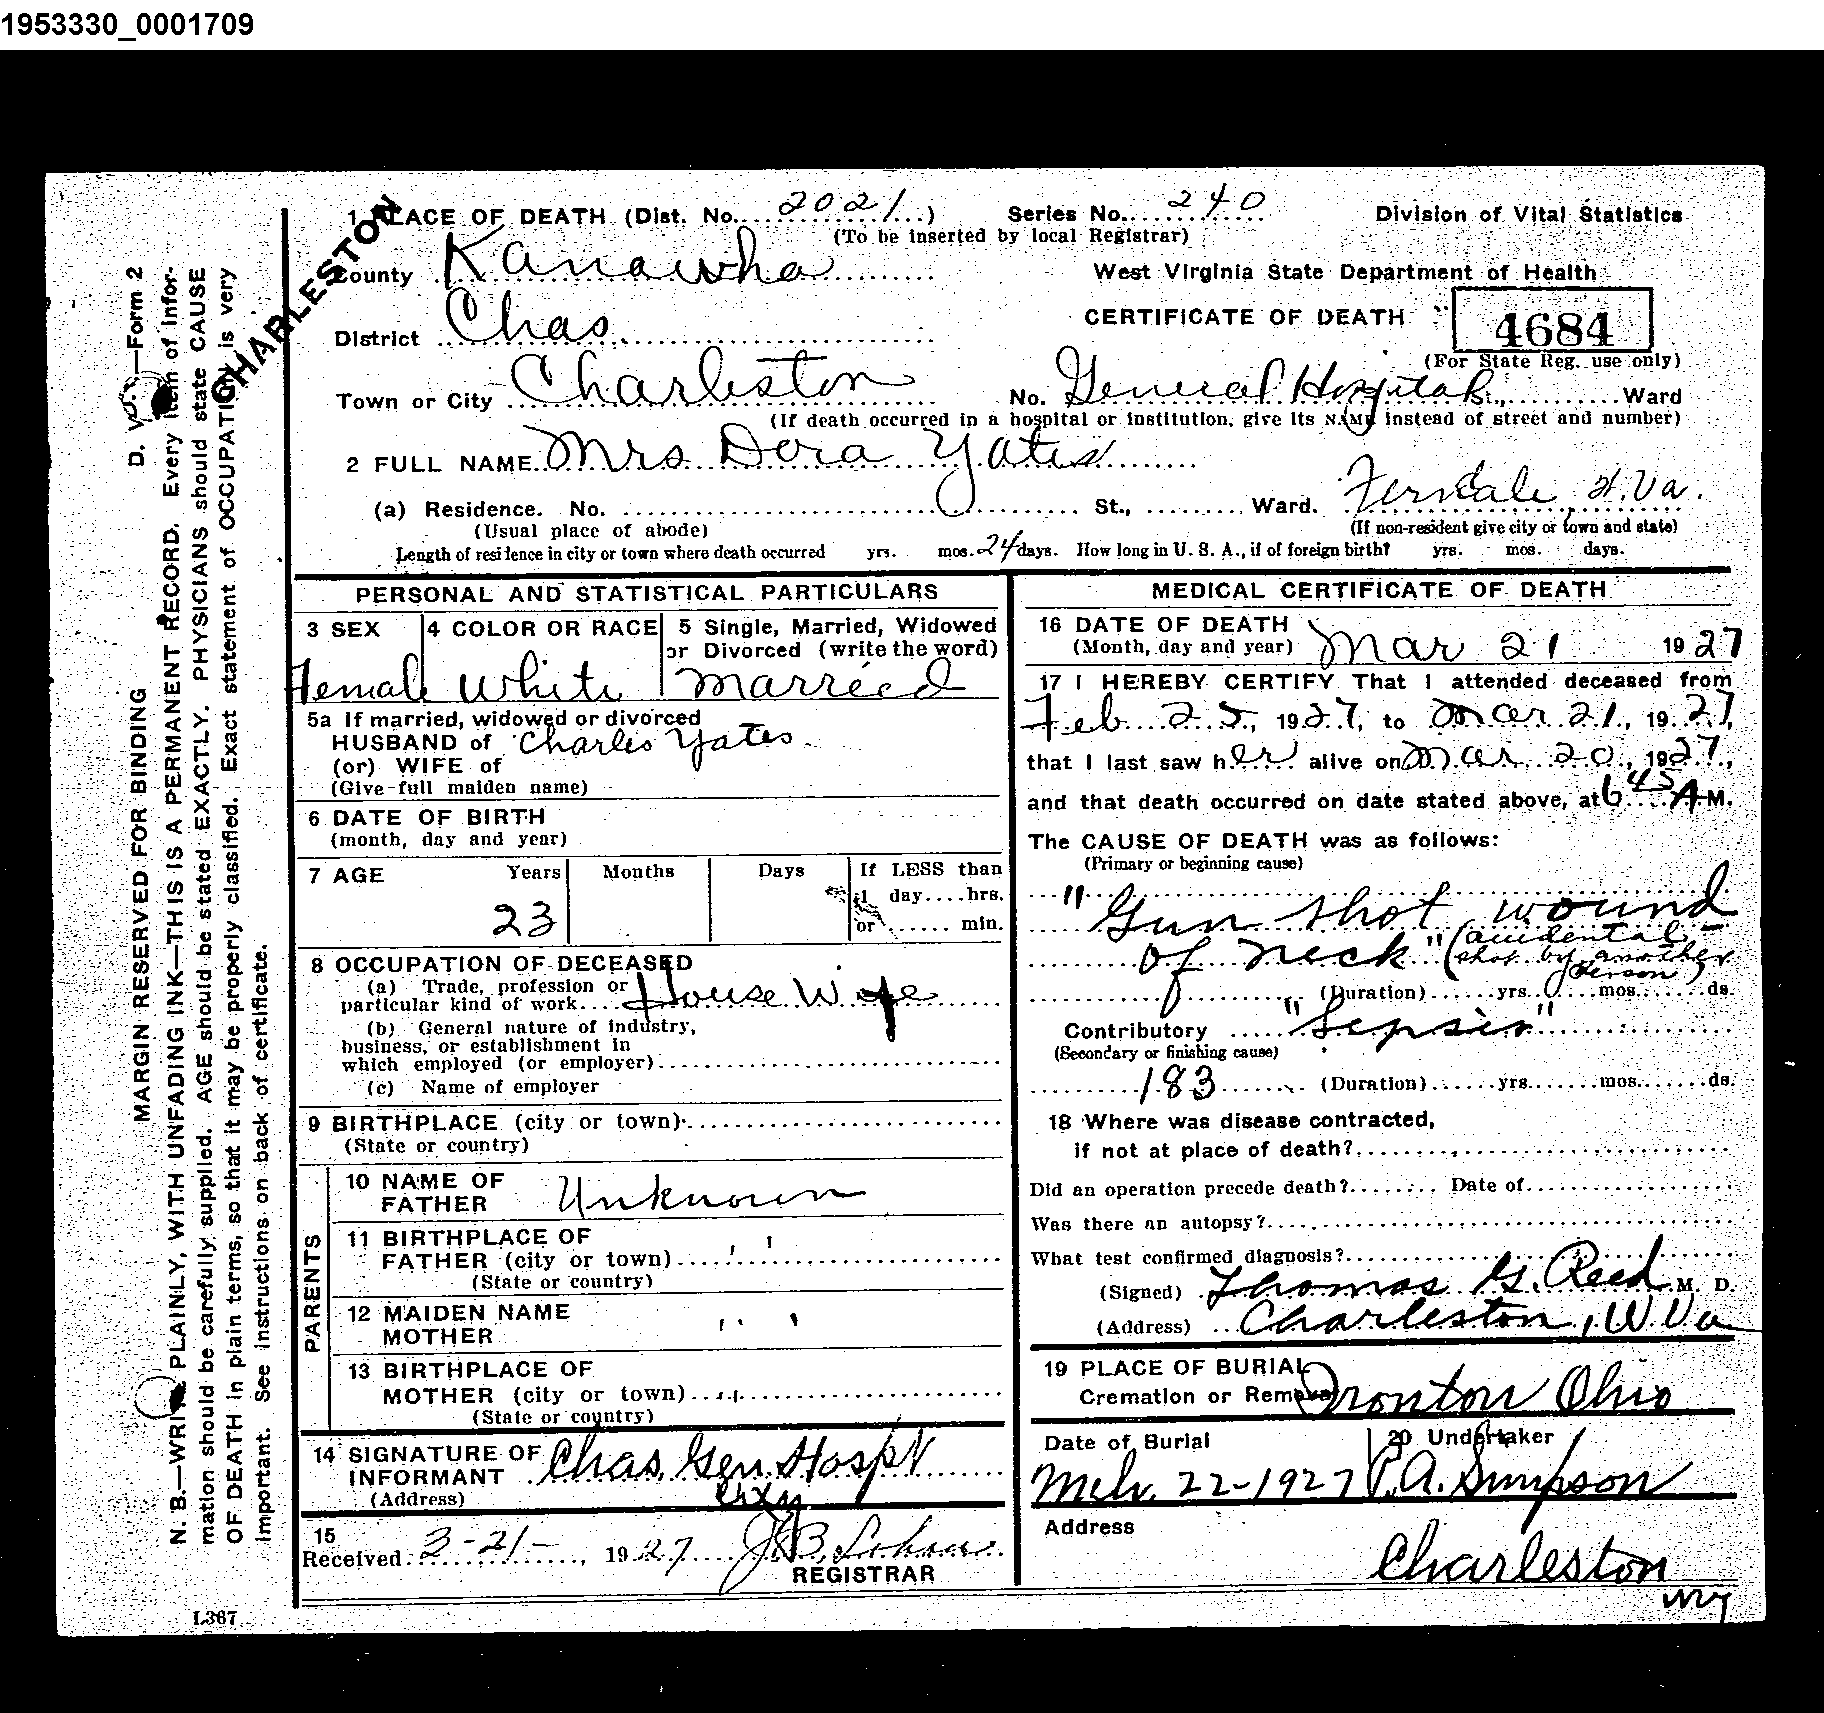 1953330_0001709
CHARLESTON
1 PLACE OF DEATH (Dist. No. 2021) Series No. 240 Division of Vital Statistics
(To be inserted by local Registrar)
County Kanawha West Virginia State Department of Health
District Chas. CERTIFICATE OF DEATH 4684
(For State Reg. use only)
Town or City Charleston No. General Hospital, Ward
(If death occurred in a hospital or institution, give its NAME instead of street and number)
2 FULL NAME Mrs Dora Yates
(a) Residence. No. St., Ward. Ferndale W.Va.
(Usual place of abode) (If non-resident give city or town and state)
Length of residence in city or town where death occurred yrs. mos. 24 days. How long in U. S. A., if of foreign birth? yrs. mos. days.
PERSONAL AND STATISTICAL PARTICULARS
3 SEX 4 COLOR OR RACE 5 Single, Married, Widowed
or Divorced (write the word)
Female White Married
5a If married, widowed or divorced
HUSBAND of Charles Yates
(or) WIFE of
(Give full maiden name)
6 DATE OF BIRTH
(month, day and year)
7 AGE Years Months Days If LESS than
1 day....hrs.
23 or ...... min.
8 OCCUPATION OF DECEASED
(a) Trade, profession or
particular kind of work.... House Wife
(b) General nature of industry,
business, or establishment in
which employed (or employer)
(c) Name of employer
9 BIRTHPLACE (city or town)
(State or country)
PARENTS
10 NAME OF
FATHER Unknown
11 BIRTHPLACE OF
FATHER (city or town) ' '
(State or country)
12 MAIDEN NAME
MOTHER ' ' '
13 BIRTHPLACE OF
MOTHER (city or town) ' '
(State or country)
14 SIGNATURE OF
INFORMANT Chas. Gen. Hosp't
(Address) City
15
Received 3-21- , 1927 J.B.
REGISTRAR
MEDICAL CERTIFICATE OF DEATH
16 DATE OF DEATH
(Month, day and year) Mar 21 1927
17 I HEREBY CERTIFY That I attended deceased from
Feb 25, 1927, to Mar 21, 1927,
that I last saw her alive on Mar 20, 1927,
and that death occurred on date stated above, at 6 45 A M.
The CAUSE OF DEATH was as follows:
(Primary or beginning cause)
"Gun shot wound
of neck" (accidental -
shot by another
person)
(Duration)......yrs.......mos.......ds.
Contributory "Sepsis"
(Secondary or finishing cause)
183 (Duration)......yrs.......mos.......ds.
18 Where was disease contracted,
if not at place of death?
Did an operation precede death? Date of
Was there an autopsy?
What test confirmed diagnosis?
(Signed) Thomas G. Reed M. D.
(Address) Charleston, W.Va
19 PLACE OF BURIAL
Cremation or Removal Ironton Ohio
Date of Burial 20 Undertaker
Mch. 22-1927 P.A. Simpson
Address
Charleston
WV
D. V. S.—Form 2
MARGIN RESERVED FOR BINDING
N. B.—WRITE PLAINLY, WITH UNFADING INK—THIS IS A PERMANENT RECORD. Every item of infor-
mation should be carefully supplied. AGE should be stated EXACTLY. PHYSICIANS should state CAUSE
OF DEATH in plain terms, so that it may be properly classified. Exact statement of OCCUPATION is very
important. See instructions on back of certificate.
L367